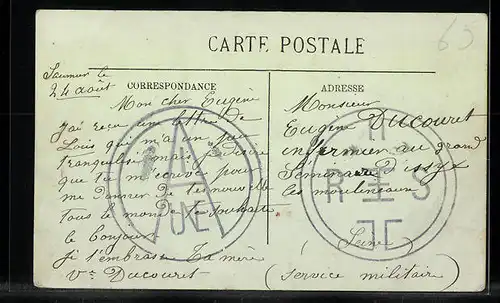 63
CARTE POSTALE
Saumur le
24 août
CORRESPONDANCE
ADRESSE
Mon cher Eugène
J'ai reçu un lettre de
Louis qui m'a un peu
tranquilisé mais je désire
que tu m'écrive pour
me donner de tes nouvelle
tous le monde te souhaite
le bonjour
je t'embrasse Ta mère
Vve Ducouret
Monsieur
Eugène Ducouret
infirmier au grand
Séminaire d'issy
les moulineaux
(Seine)
(service militaire)